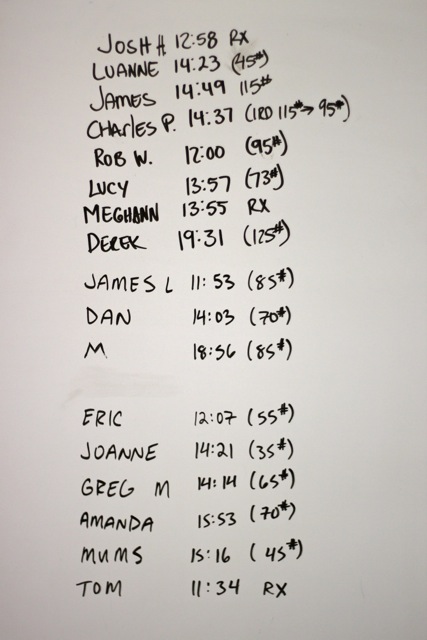 JOSH H 12:58 RX
LUANNE 14:23 (45#)
JAMES 14:49 115#
CHArlES P. 14:37 (1RD 115# → 95#)
ROB W. 12:00 (95#)
LUCY 13:57 (73#)
MEGHANN 13:55 RX
DEREK 19:31 (125#)
JAMES L 11:53 (85#)
DAN 14:03 (70#)
M 18:56 (85#)
ERIC 12:07 (55#)
JOANNE 14:21 (35#)
GREG M 14:14 (65#)
AMANDA 15:53 (70#)
MUMS 15:16 (45#)
TOM 11:34 RX